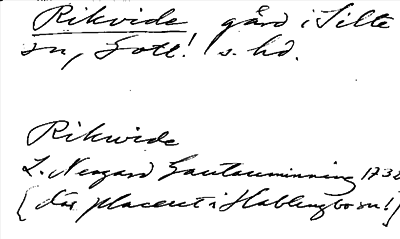 Rikvide, gård i Silte
sn, Gotl! s. hd.
Rikwide
L. Neogard Gautauminning 1732
[där placerat i Hablingbo sn!]